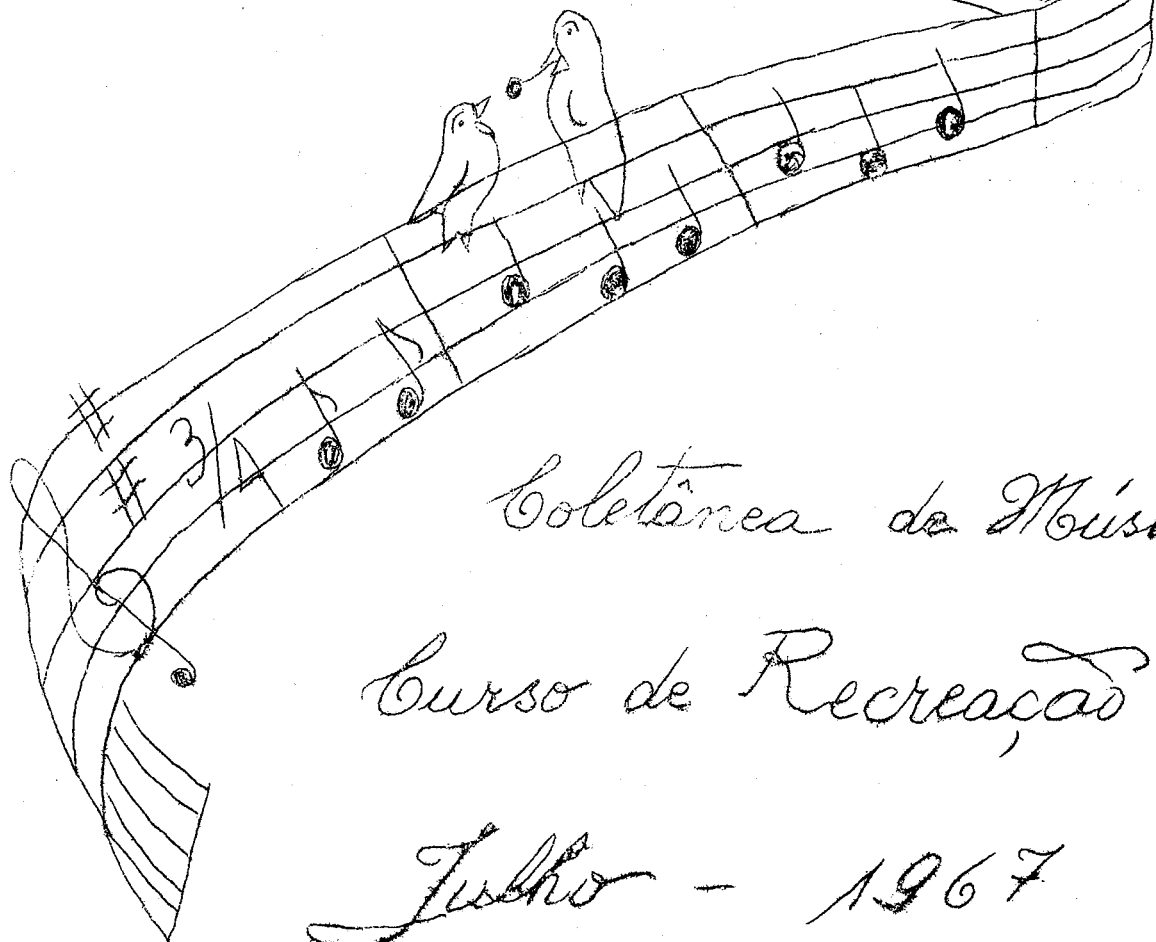 # # 3/4
Coletânea de Mús
Curso de Recreação
Julho - 1967